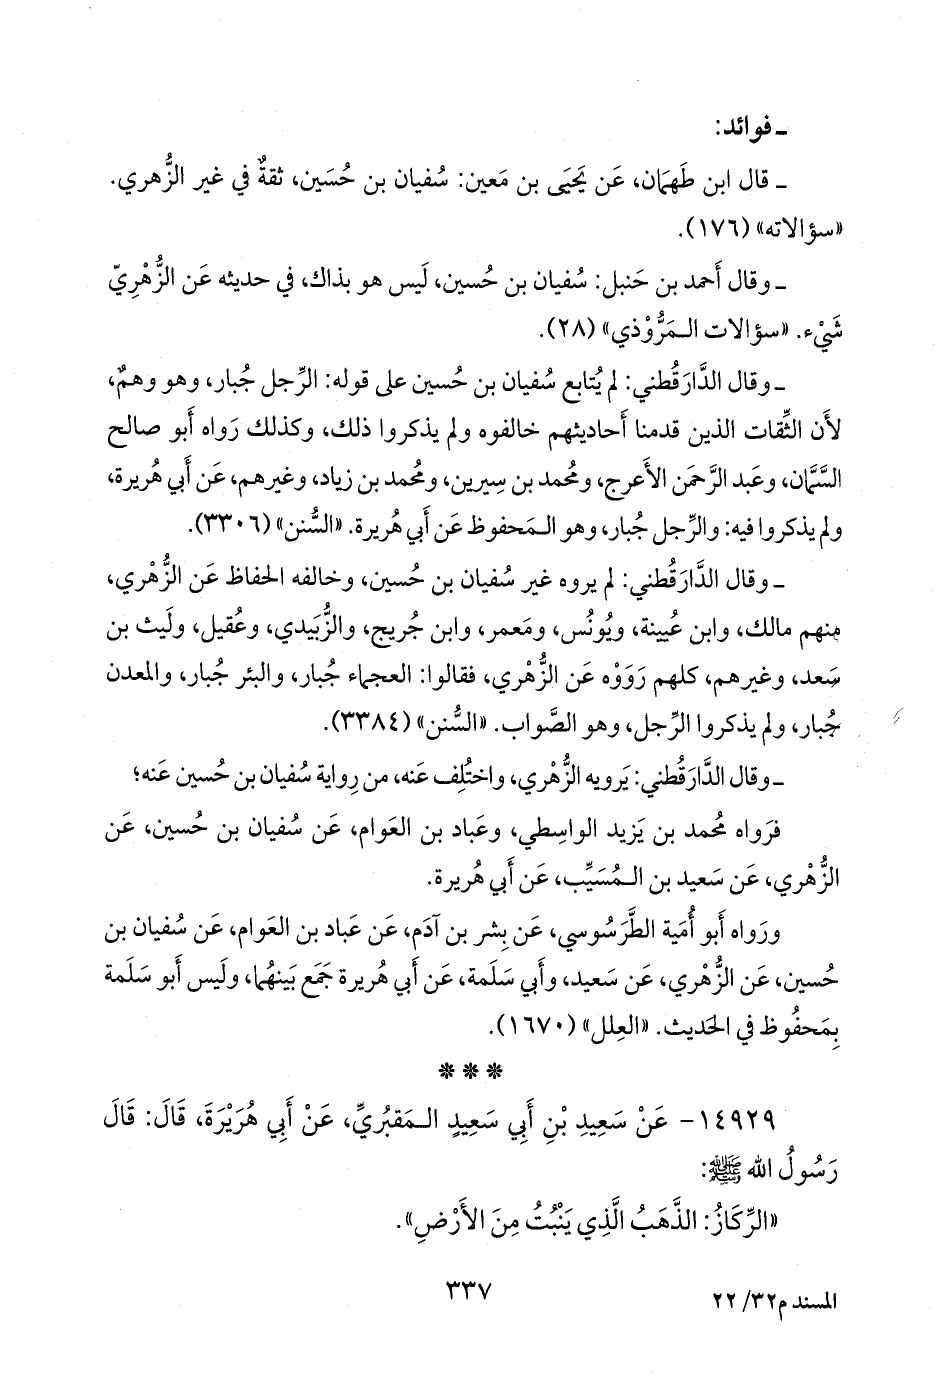 ـ فوائد:
ـ قال ابن طَهمَان، عَن يَحيَى بن مَعين: سُفيان بن حُسَين، ثقةٌ في غير الزُّهري.
«سؤالاته» (١٧٦).
ـ وقال أَحمد بن حَنبل: سُفيان بن حُسين، لَيس هو بذاك، في حديثه عَن الزُّهْرِيّ
شَيْء. «سؤالات المَرُّوْذي» (٢٨).
ـ وقال الدَّارَقُطني: لم يُتابع سُفيان بن حُسين على قوله: الرِّجل جُبار، وهو وهمٌ،
لأَن الثِّقات الذين قدمنا أَحاديثهم خالفوه ولم يذكروا ذلك، وكذلك رَواه أَبو صالح
السَّمَّان، وعَبد الرَّحمَن الأَعرج، ومُحمد بن سِيرين، ومُحمد بن زياد، وغيرهم، عَن أَبي هُريرة،
ولم يذكروا فيه: والرِّجل جُبار، وهو المَحفوظ عَن أَبي هُريرة. «السُّنن» (٣٣٠٦).
ـ وقال الدَّارَقُطني: لم يروه غير سُفيان بن حُسين، وخالفه الحفاظ عَن الزُّهْري،
منهم مالك، وابن عُيينة، ويُونُس، ومَعمر، وابن جُريج، والزُّبَيدي، وعُقيل، ولَيث بن
سَعد، وغيرهم، كلهم رَوَوْه عَن الزُّهْري، فقالوا: العجماء جُبار، والبئر جُبار، والمعدن
جُبار، ولم يذكروا الرِّجل، وهو الصَّواب. «السُّنن» (٣٣٨٤).
ـ وقال الدَّارَقُطني: يَرويه الزُّهْري، واختُلِف عَنه، من رِواية سُفيان بن حُسين عَنه؛
فرَواه مُحمد بن يَزيد الواسِطي، وعَباد بن العَوام، عَن سُفيان بن حُسين، عَن
الزُّهْري، عَن سَعيد بن المُسَيِّب، عَن أَبي هُريرة.
ورَواه أَبو أُمية الطَّرَسُوسي، عَن بِشر بن آدَم، عَن عَباد بن العَوام، عَن سُفيان بن
حُسين، عَن الزُّهْري، عَن سَعيد، وأَبي سَلَمة، عَن أَبي هُريرة جَمَع بَينهُما، ولَيس أَبو سَلَمة
بِمَحفُوظ في الحَديث. «العِلل» (١٦٧٠).
* * *
١٤٩٢٩- عَنْ سَعِيدِ بْنِ أَبِي سَعِيدٍ المَقبُرِيِّ، عَنْ أَبِي هُرَيْرَةَ، قَالَ: قَالَ
رَسُولُ الله ﷺ:
«الرِّكَازُ: الذَّهَبُ الَّذِي يَنْبُتُ مِنَ الأَرْضِ».
المسند م٣٢/ ٢٢
٣٣٧